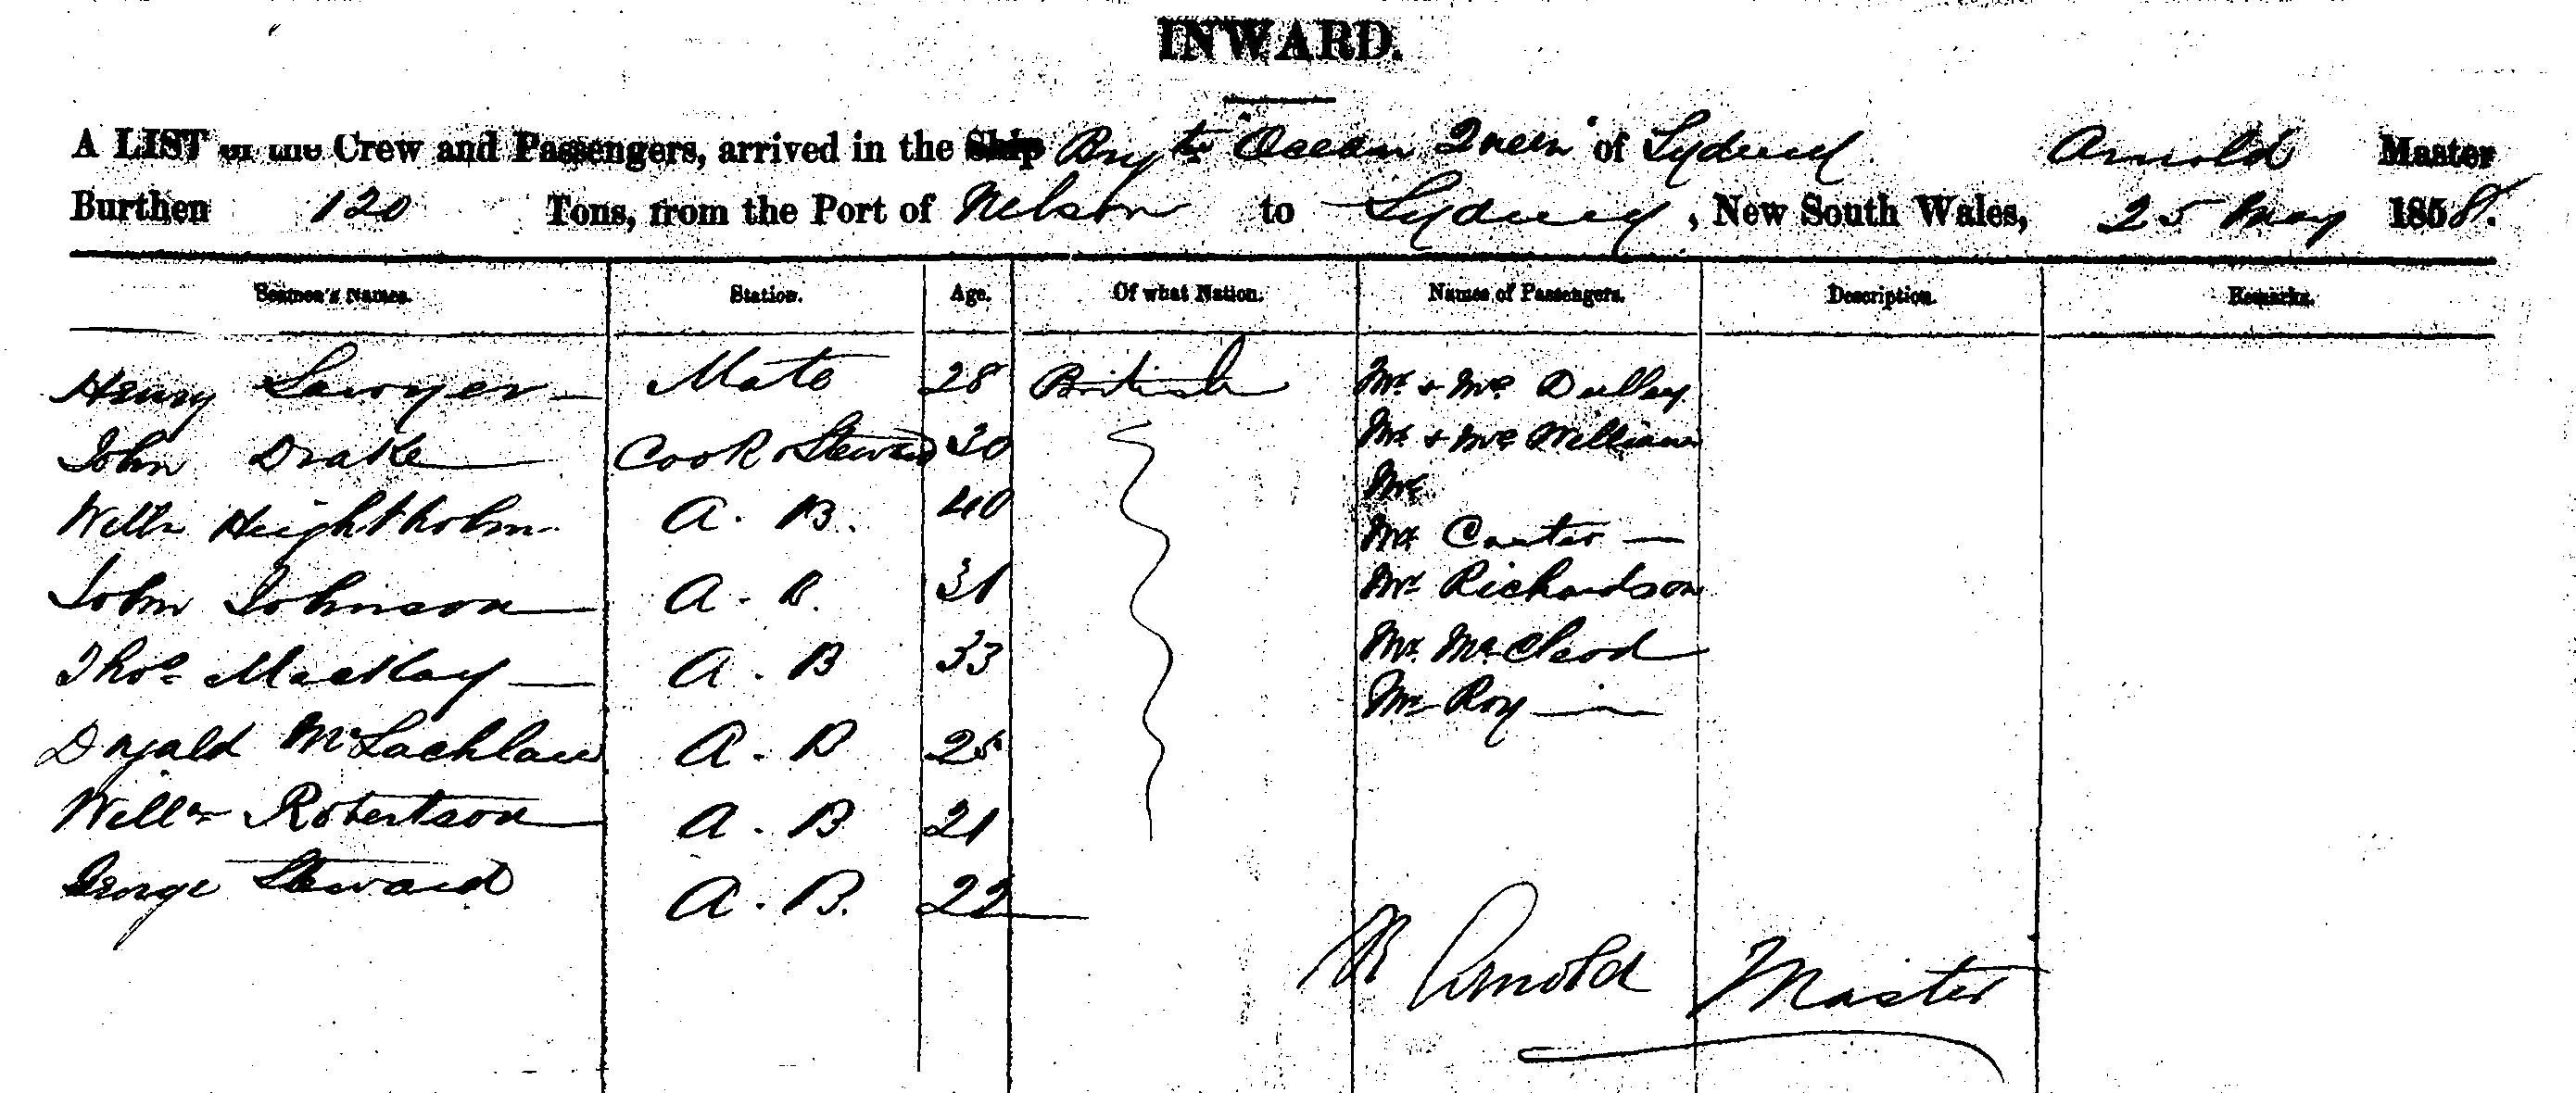 INWARD.
A LIST of the Crew and Passengers, arrived in the Ship Brigtn "Ocean Queen" of Sydney Arnold Master
Burthen 120 Tons, from the Port of Nelson to Sydney, New South Wales, 25 May 1858.
Seamen's Names. Station. Age. Of what Nation. Names of Passengers. Description. Remarks.
Henry Sawyer Mate 28 British Mr & Mrs Dulley
John Drake Cook & Steward 30 Mr & Mrs Williams
Willm Heightholm A.B. 40 Mr
Mr Carter
John Johnson A.B. 31 Mr Richardson
Thos Mackay A.B 33 Mr McCleod
Mr Roy
Dugald McLachlan A.B 25
Willm Robertson A.B 21
George Steward A.B. 22
Arnold Master